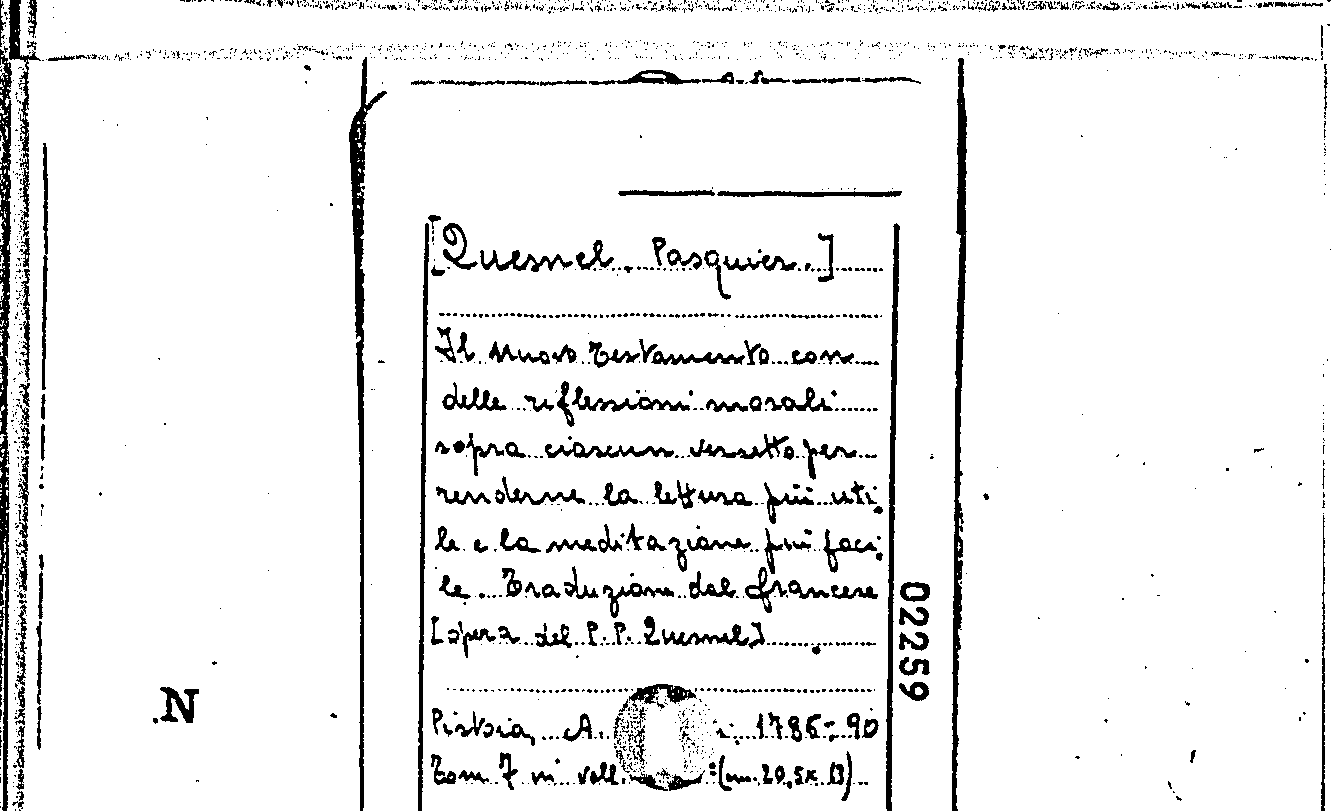 [Quesnel. Pasquier.]
Il Nuovo Testamento con
delle riflessioni morali
sopra ciascun versetto per
renderne la lettura più uti
le e la meditazione più faci
le. Traduzione dal francese
[opera del P. P. Quesnel]
Pistoia, A. 1786-90
Tom 7 in voll. (cm. 20,5x13)
02259
N